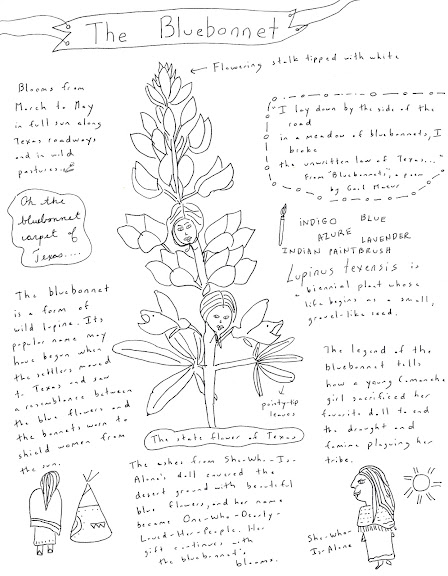 The Bluebonnet
Flowering stalk tipped with white
Blooms from
March to May
in full sun along
Texas roadways
and in wild
pastures.
I lay down by the side of the
road
in a meadow of bluebonnets, I
broke
the unwritten law of Texas..."
From "Bluebonnets", a poem
by Gail Mazur
Oh the
bluebonnet
carpet of
Texas....
INDIGO BLUE
AZURE LAVENDER
INDIAN PAINTBRUSH
Lupinus texensis is
biennial plant whose
life begins as a small,
gravel-like seed.
The bluebonnet
is a form of
wild lupine. Its
popular name may
have begun when
the settlers moved
to Texas and saw
a resemblance between
the blue flowers and
the bonnets worn to
shield women from
the sun.
pointy-tip
leaves
The legend of the
bluebonnet tells
how a young Comanche
girl sacrificed her
favorite doll to end
the drought and
famine plaguing her
tribe.
The state flower of Texas
The ashes from She-Who-Is-
Alone's doll covered the
desert ground with beautiful
blue flowers, and her name
became One-Who-Dearly-
Loved-Her-People. Her
gift continues with
the bluebonnet's
blooms.
She-Who-
Is-Alone